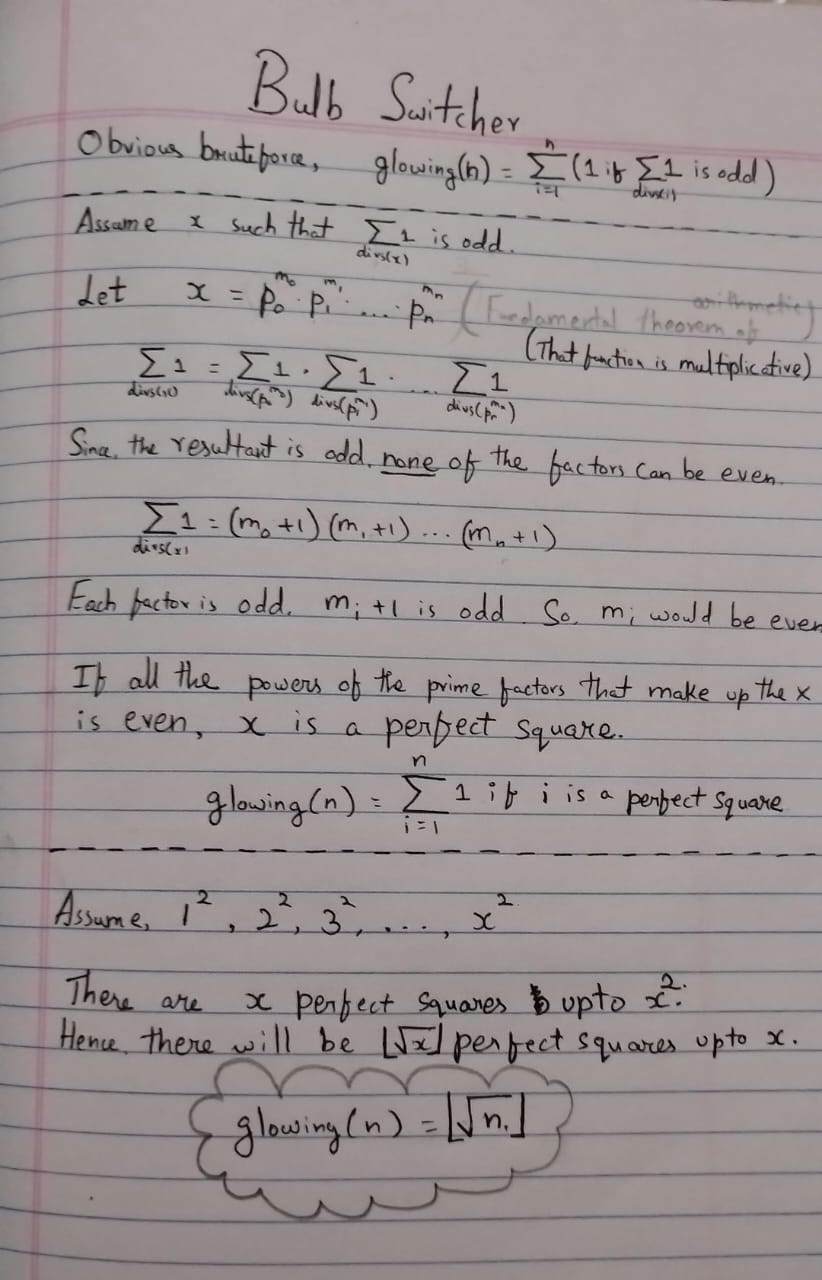 Bulb Switcher
Obvious bruteforce, glowing(n) = n∑i=1 (1 if ∑divs(i) 1 is odd)
Assume x such that ∑divs(x) 1 is odd.
Let x = p₀^m₀ · p₁^m₁ · .... pₙ^mₙ (Fundamental theorem of arithmetic)
(That function is multiplicative)
∑divs(x) 1 = ∑divs(p₀^m₀) 1 · ∑divs(p₁^m₁) 1 · ... ∑divs(pₙ^mₙ) 1
Since, the resultant is odd, none of the factors can be even.
∑divs(x) 1 = (m₀+1) (m₁+1) ... (mₙ+1)
Each factor is odd. mᵢ+1 is odd. So, mᵢ would be even
If all the powers of the prime factors that make up the x
is even, x is a perfect square.
glowing(n) = n∑i=1 1 if i is a perfect square
Assume, 1², 2², 3², ..., x²
There are x perfect squares upto x².
Hence, there will be ⌊√x⌋ perfect squares upto x.
glowing(n) = ⌊√n⌋